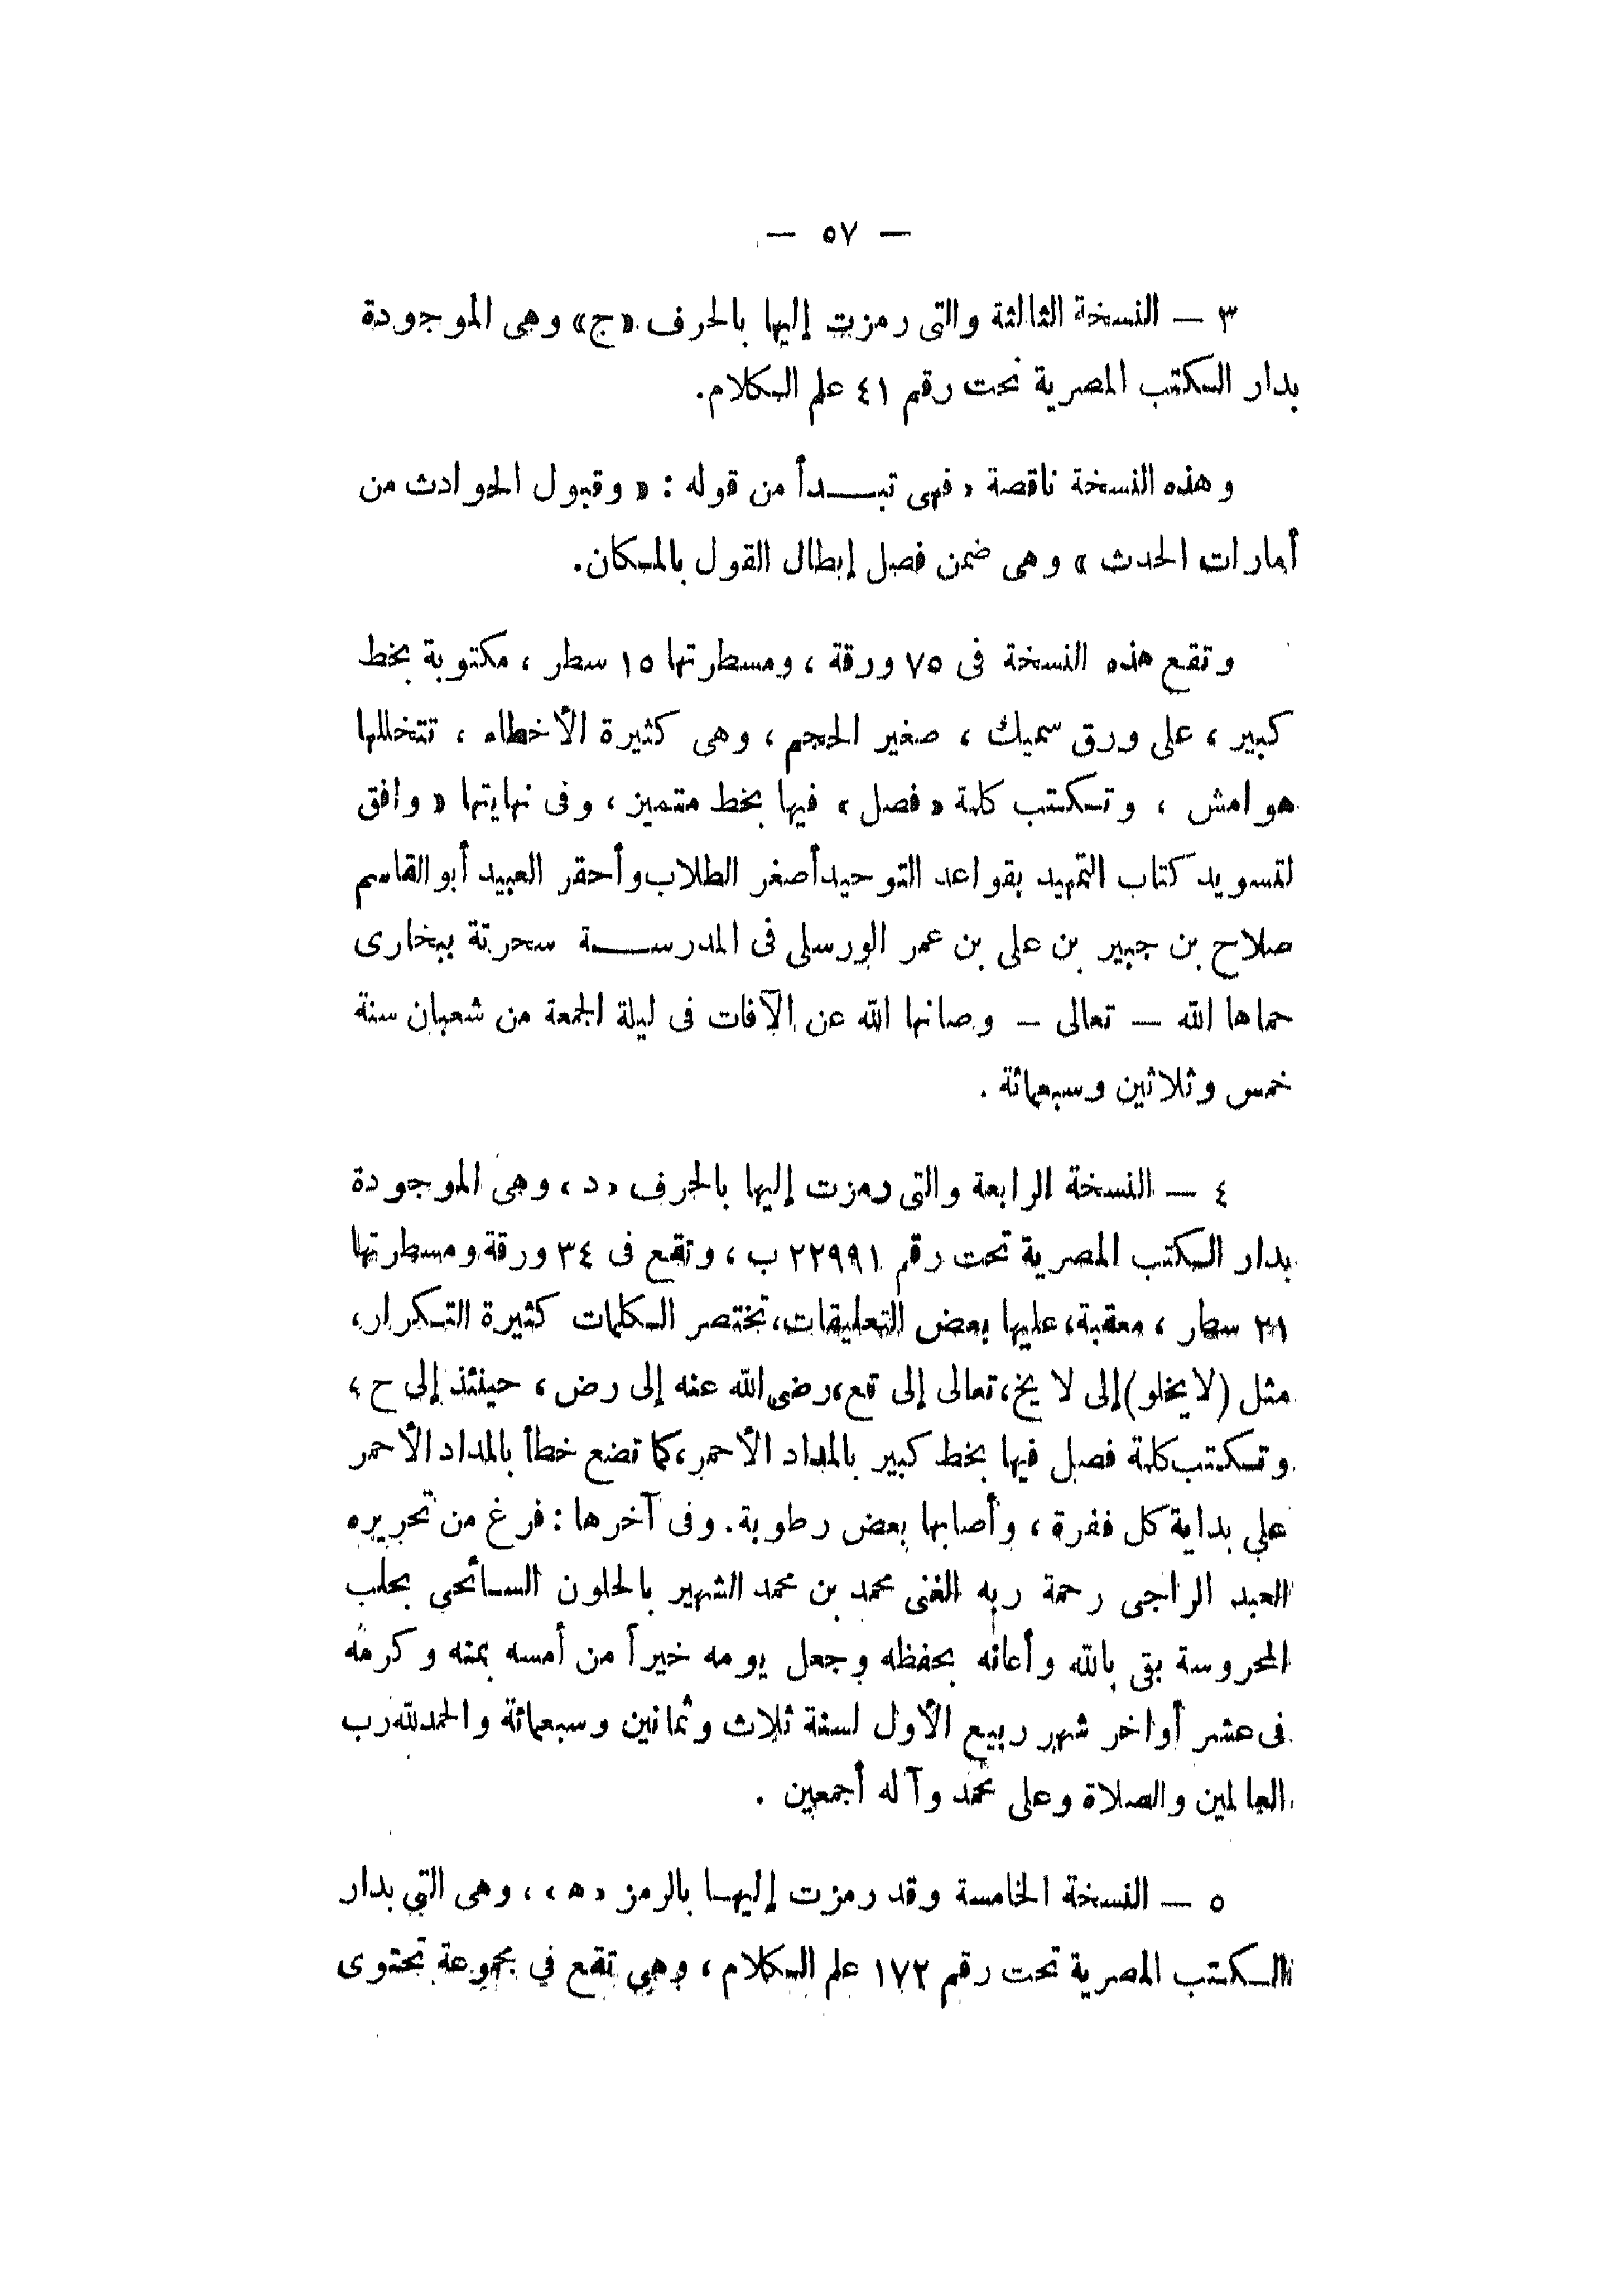 — ٥٧ —
٣ — النسخة الثالثة والتى رمزت إليها بالحرف «ج» وهى الموجودة
بدار الكتب المصرية تحت رقم ٤١ علم الكلام.
وهذه النسخة ناقصة ، فهى تبدأ من قوله : « وقبول الحوادث من
أمارات الحدث » وهى ضمن فصل إبطال القول بالمكان.
وتقع هذه النسخة فى ٧٥ ورقة ، ومسطرتها ١٥ سطر ، مكتوبة بخط
كبير ، على ورق سميك ، صغير الحجم ، وهى كثيرة الأخطاء ، تتخللها
هوامش ، وتكتب كلمة « فصل » فيها بخط متميز ، وفى نهايتها « وافق
لتسويد كتاب التمهيد بقواعد التوحيد أصغر الطلاب وأحقر العبيد أبو القاسم
صلاح بن جبير بن على بن عمر الورسلى فى المدرسة سحرتة ببخارى
حماها الله — تعالى — وصانها الله عن الآفات فى ليلة الجمعة من شعبان سنة
خمس وثلاثين وسبعمائة .
٤ — النسخة الرابعة والتى رمزت إليها بالحرف «د» وهى الموجودة
بدار الكتب المصرية تحت رقم ٢٢٩٩١ ب ، وتقع فى ٣٤ ورقة ومسطرتها
٢١ سطر ، معقبة، عليها بعض التعليقات، تختصر الكلمات كثيرة التكرار،
مثل (لا يخلو) إلى لا يخ، تعالى إلى تع، رضى الله عنه إلى رض ، حينئذ إلى ح ،
وتكتب كلمة فصل فيها بخط كبير بالمداد الأحمر، كما تضع خطأ بالمداد الأحمر
على بداية كل فقرة ، وأصابها بعض رطوبة. وفى آخرها : فرغ من تحريره
العبد الراجى رحمة ربه الغنى محمد بن محمد الشهير بالحلون السائحى بحلب
المحروسة بقى بالله وأعانه بحفظه وجعل يومه خيراً من أمسه بمنه وكرمه
فى عشر أواخر شهر ربيع الأول لسنة ثلاث وثمانين وسبعمائة والحمد لله رب
العالمين والصلاة وعلى محمد وآله أجمعين .
٥ — النسخة الخامسة وقد رمزت إليها بالرمز «ه» ، وهى التي بدار
الكتب المصرية تحت رقم ١٧٢ علم الكلام ، وهى تقع في مجموعة تحتوى